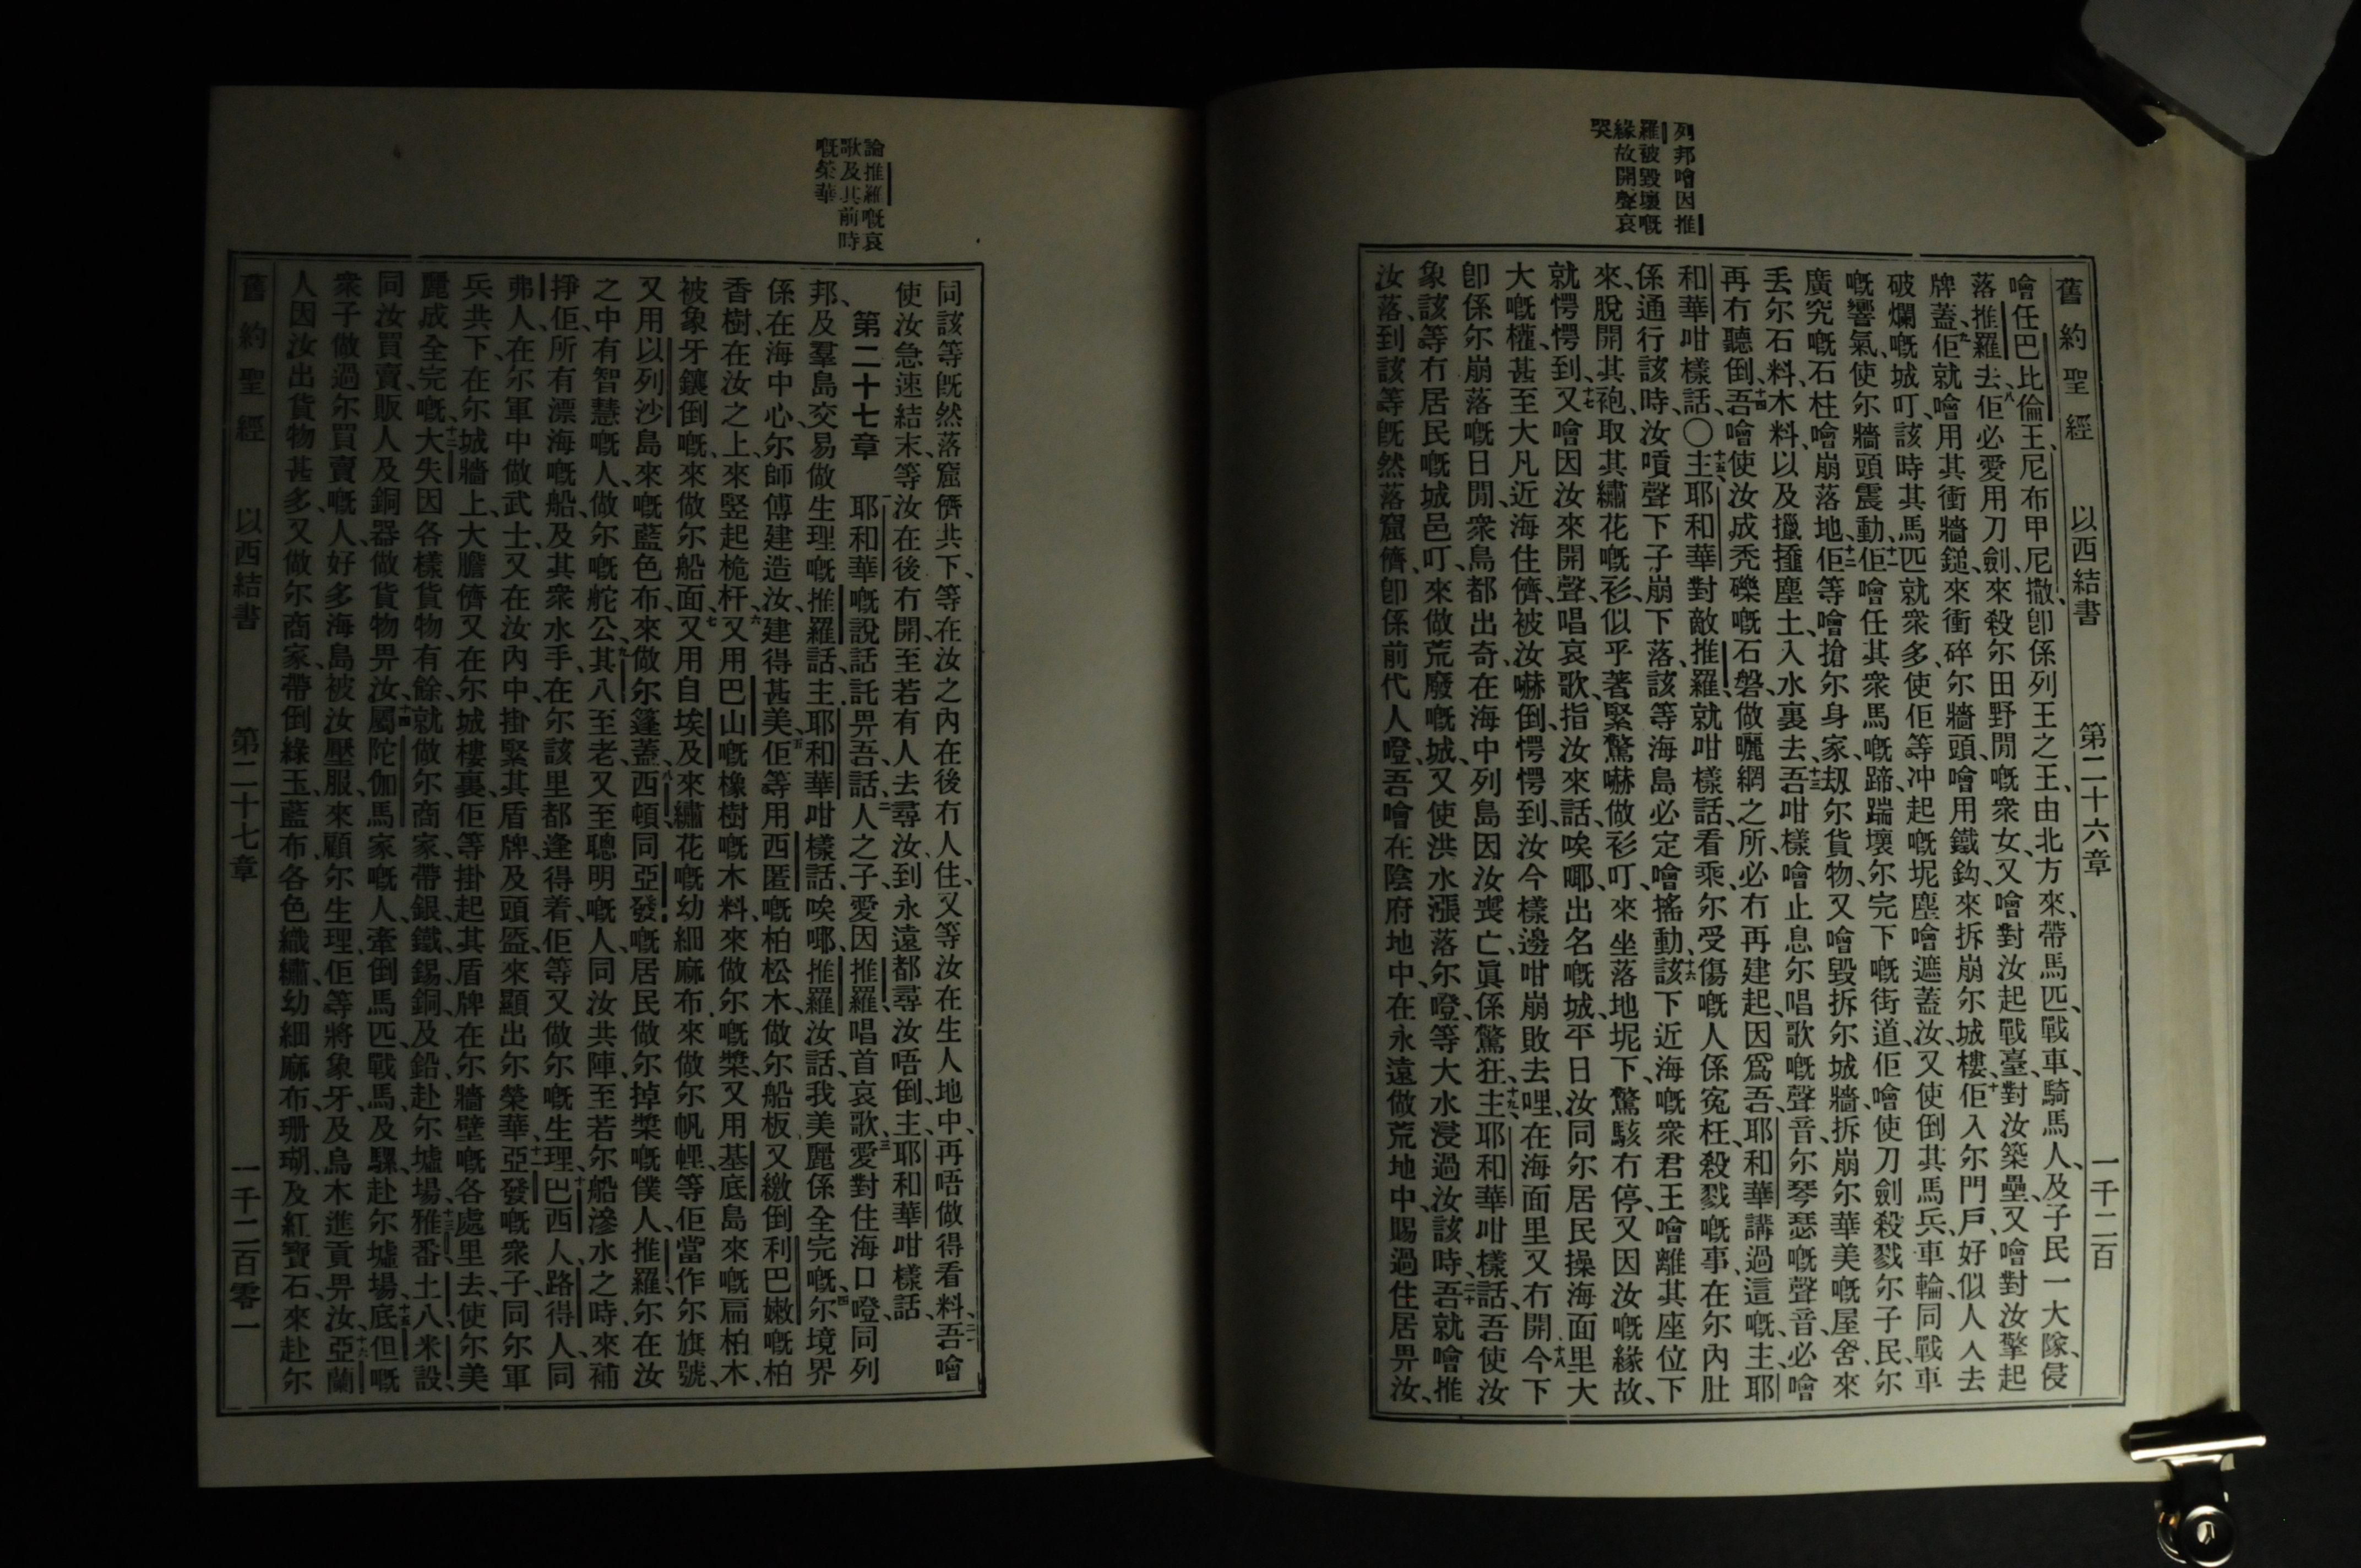 列邦噲因推
羅被毀壞嘅
緣故開聲哀
哭
舊約聖經 以西結書 第二十六章 一千二百
噲任巴比倫王、尼布甲尼撒、卽係列王之王、由北方來、帶馬匹、戰車、騎馬人、及子民一大隊、侵
落推羅去、八佢必愛用刀劍、來殺尔田野閒嘅衆女、又噲對汝起戰臺、對汝築壘、又噲對汝擎起
牌蓋、九佢就噲用其衝牆鎚、來衝碎尔牆頭、噲用鐵鈎、來拆崩尔城樓、十佢入尔門戶、好似人人去
破爛嘅城叮、該時其馬匹就衆多、使佢等冲起嘅坭塵、噲遮蓋汝、又使倒其馬兵、車輪、同戰車
嘅響氣、使尔牆頭震動、十一佢噲任其衆馬嘅蹄、踹壞尔完下嘅街道、佢噲使刀劍殺戮尔子民、尔
廣究嘅石柱、噲崩落地、十二佢等噲搶尔身家、刼尔貨物、又噲毀拆尔城牆、拆崩尔華美嘅屋舍、來
丟尔石料、木料、以及擸𢶍塵土、入水裏去、十三吾咁樣噲止息尔唱歌嘅聲音、尔琴瑟嘅聲音、必噲
再冇聽倒、十四吾噲使汝成秃礫嘅石磐、做曬網之所、必冇再建起、因爲吾、耶和華講過這嘅、主耶
和華咁樣話、〇十五主耶和華對敵推羅、就咁樣話、看乘、尔受傷嘅人係冤枉、殺戮嘅事、在尔內肚
係通行、該時、汝嘳聲下子崩下落、該等海島必定噲搖動、十六該下近海嘅衆君王噲離其座位下
來、脫開其袍、取其繡花嘅衫、似乎著緊驚嚇做衫叮、來坐落地坭下、驚駭冇停、又因汝嘅緣故、
就愕愕到、十七又噲因汝來開聲、唱哀歌、指汝來話、唉㖿、出名嘅城、平日汝同尔居民操海面里大
大嘅權、甚至大凡近海住儕、被汝嚇倒、愕愕到、汝今樣邊咁崩敗去哩、在海面里又冇開、十八今下
卽係尔崩落嘅日閒、衆島都出奇、在海中列島、因汝喪亡、眞係驚狂、十九主耶和華咁樣話、吾使汝
象該等冇居民嘅城邑叮、來做荒廢嘅城、又使洪水漲落尔噔、等大水浸過汝、該時、二十吾就噲推
汝落、到該等旣然落窟儕、卽係前代人噔、吾噲在陰府地中、在永遠做荒地中、賜過住居畀汝、
論推羅嘅哀
歌及其前時
嘅榮華
同該等旣然落窟儕共下、等在汝之內在後冇人住、又等汝在生人地中、再唔做得看料、二一吾噲
使汝急速結末、等汝在後冇開、至若有人去尋汝、到永遠都尋汝唔倒、主耶和華咁樣話、
第二十七章 一耶和華嘅說話、託畀吾、話、二人之子、愛因推羅、唱首哀歌、三愛對住海口噔、同列
邦、及羣島交易做生理嘅推羅話、主耶和華咁樣話、唉㖿、推羅、汝話、我美麗係全完嘅、四尔境界
係在海中心、尔師傅建造汝、建得甚美、五佢等用西匿嘅柏松木、做尔船板、又繳倒利巴嫩嘅柏
香樹、在汝之上、來竪起桅杆、六又用巴山嘅橡樹嘅木料、來做尔嘅槳、又用基底島來嘅扁柏木、
被象牙鑲倒嘅、來做尔船面、七又用自埃及來繡花嘅幼細麻布、來做尔帆𢃇、等佢當作尔旗號、
又用以列沙島來嘅藍色布、來做尔篷蓋、八西頓、同亞發、嘅居民、做尔掉槳嘅僕人、推羅、尔在汝
之中有智慧嘅人、做尔嘅舵公、九其八至老、又至聰明嘅人、同汝共陣、至若尔船滲水之時、來補
掙佢、所有漂海嘅船、及其衆水手、在尔該里都逢得着、佢等又做尔嘅生理、十巴西人、路得人、同
弗人、在尔軍中做武士、又在汝內中、掛緊其盾牌、及頭盔、來顯出尔榮華、十一亞發嘅衆子、同尔軍
兵共下、在尔城牆上、大膽儕又在尔城樓裏、佢等掛起其盾牌在尔牆壁嘅各處里去、使尔美
麗成全完嘅、十二大失因各樣貨物有餘、就做尔商家、帶銀、鐵、錫、銅、及鉛、赴尔墟場、十三雅番、土八、米設、
同汝買賣、販人及銅器、做貨物畀汝、十四屬陀伽馬家嘅人、牽倒馬匹、戰馬、及騾、赴尔墟場、十五底但嘅
衆子做過尔買賣嘅人、好多海島被汝壓服、來顧尔生理、佢等將象牙、及烏木進貢畀汝、十六亞蘭
人因汝出貨物甚多、又做尔商家、帶倒綠玉、藍布、各色織繡、幼細麻布、珊瑚、及紅寶石、來赴尔
舊約聖經 以西結書 第二十七章 一千二百零一